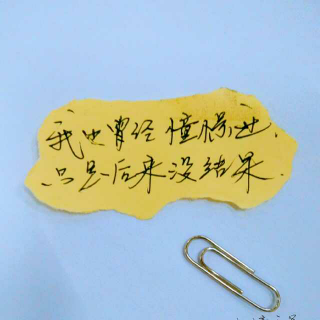 我也曾经憧憬过.
只是后来没结果.